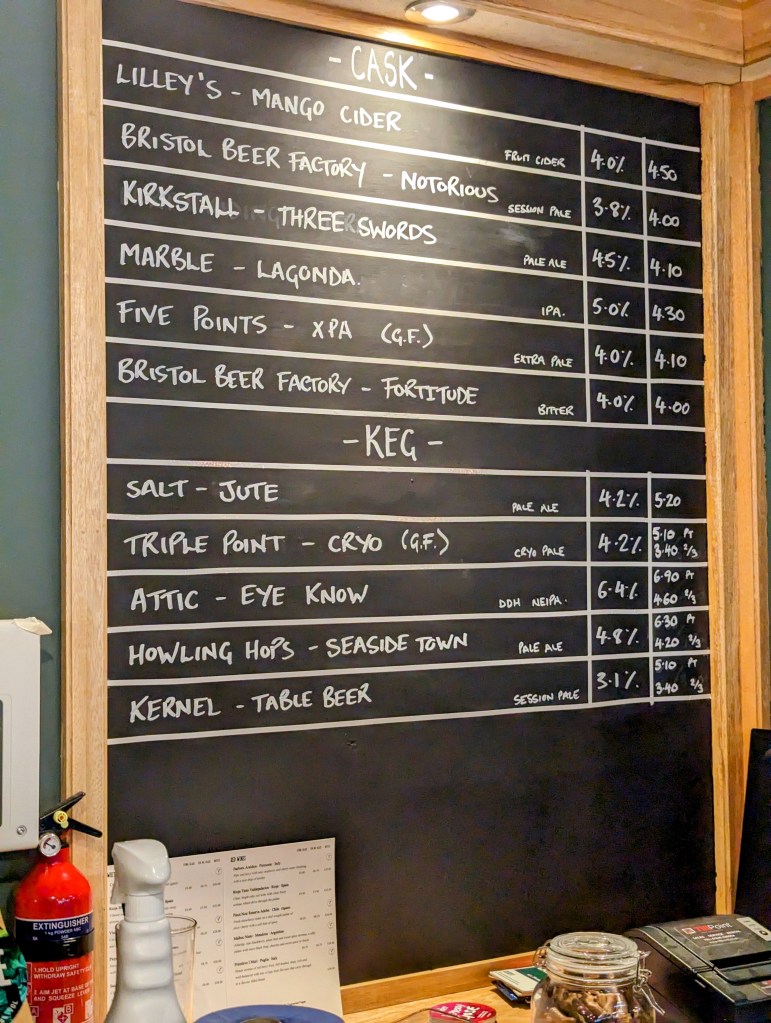 - CASK -
LILLEY'S - MANGO CIDER FRUIT CIDER 4.0% 4.50
BRISTOL BEER FACTORY - NOTORIOUS SESSION PALE 3.8% 4.00
KIRKSTALL - THREE SWORDS PALE ALE 4.5% 4.10
MARBLE - LAGONDA. IPA. 5.0% 4.30
FIVE POINTS - XPA (G.F.) EXTRA PALE 4.0% 4.10
BRISTOL BEER FACTORY - FORTITUDE BITTER 4.0% 4.00
- KEG -
SALT - JUTE PALE ALE 4.2% 5.20
TRIPLE POINT - CRYO (G.F.) CRYO PALE 4.2% 5.10 PT
3.40 2/3
ATTIC - EYE KNOW DDH NEIPA. 6.4% 6.90 PT
4.60 2/3
HOWLING HOPS - SEASIDE TOWN PALE ALE 4.8% 6.30 PT
4.20 2/3
KERNEL - TABLE BEER SESSION PALE 3.1% 5.10 PT
3.40 2/3
EXTINGUISHER
1 kg POWDER ABC
1. HOLD UPRIGHT
WITHDRAW SAFETY
2. AIM JET AT BASE OF
AND SQUEEZE LEVER
RED WINES